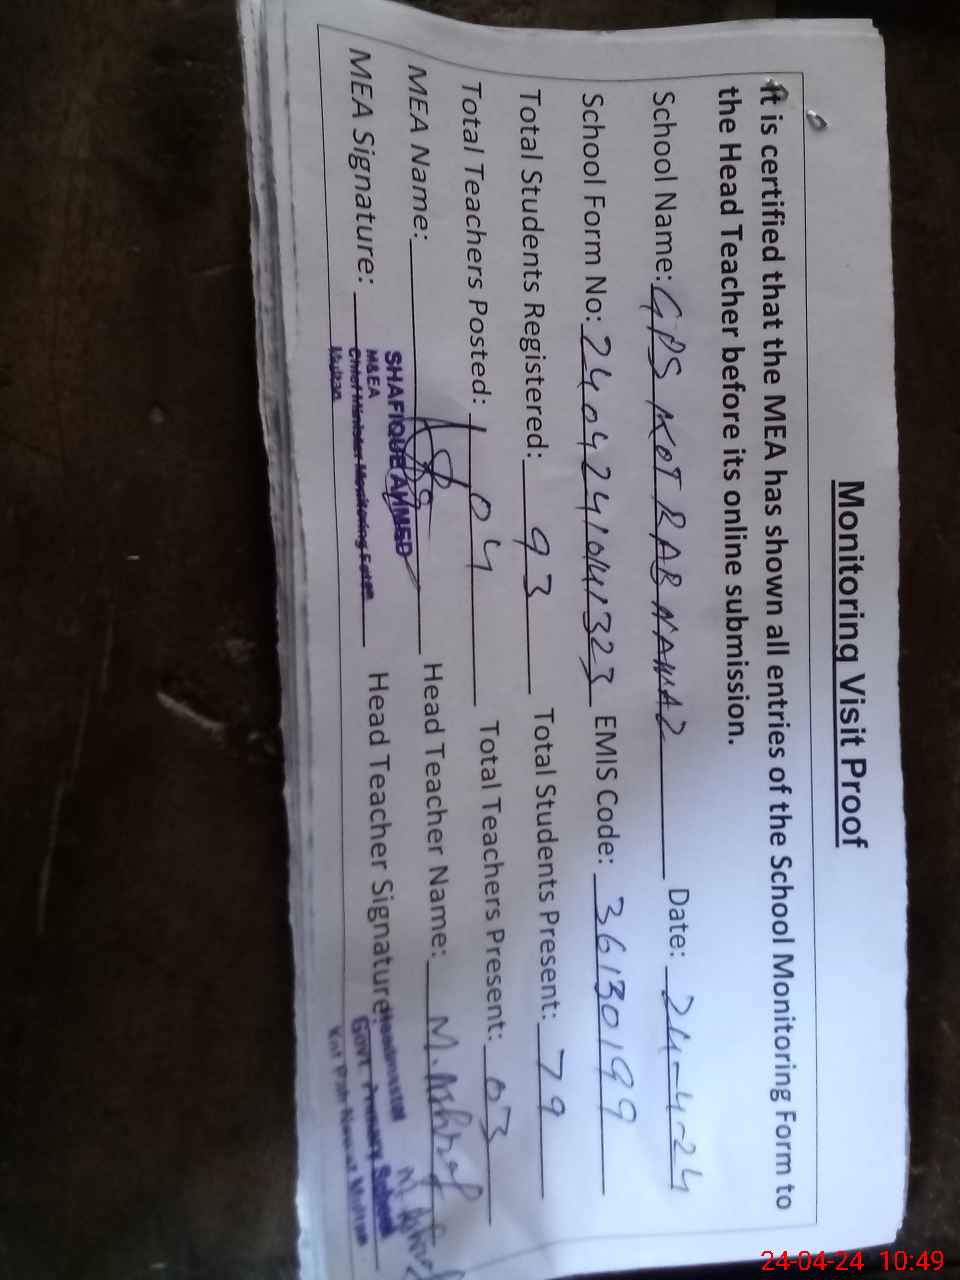 Monitoring Visit Proof
It is certified that the MEA has shown all entries of the School Monitoring Form to
the Head Teacher before its online submission.
School Name: GPS KOT RAB NAWAZ Date: 24-4-24
School Form No: EMIS Code: 36130199
Total Students Registered: 93 Total Students Present: 79
Total Teachers Posted: 04 Total Teachers Present: 03
MEA Name: Head Teacher Name: M. Ashraf
SHAFIQUE AHMED
MEA Signature: Head Teacher Signature:
M&EA
Chief Minister Monitoring Force
Multan
Headmaster
Govt Primary School
Kot Rab Nawaz Multan
24-04-24 10:49